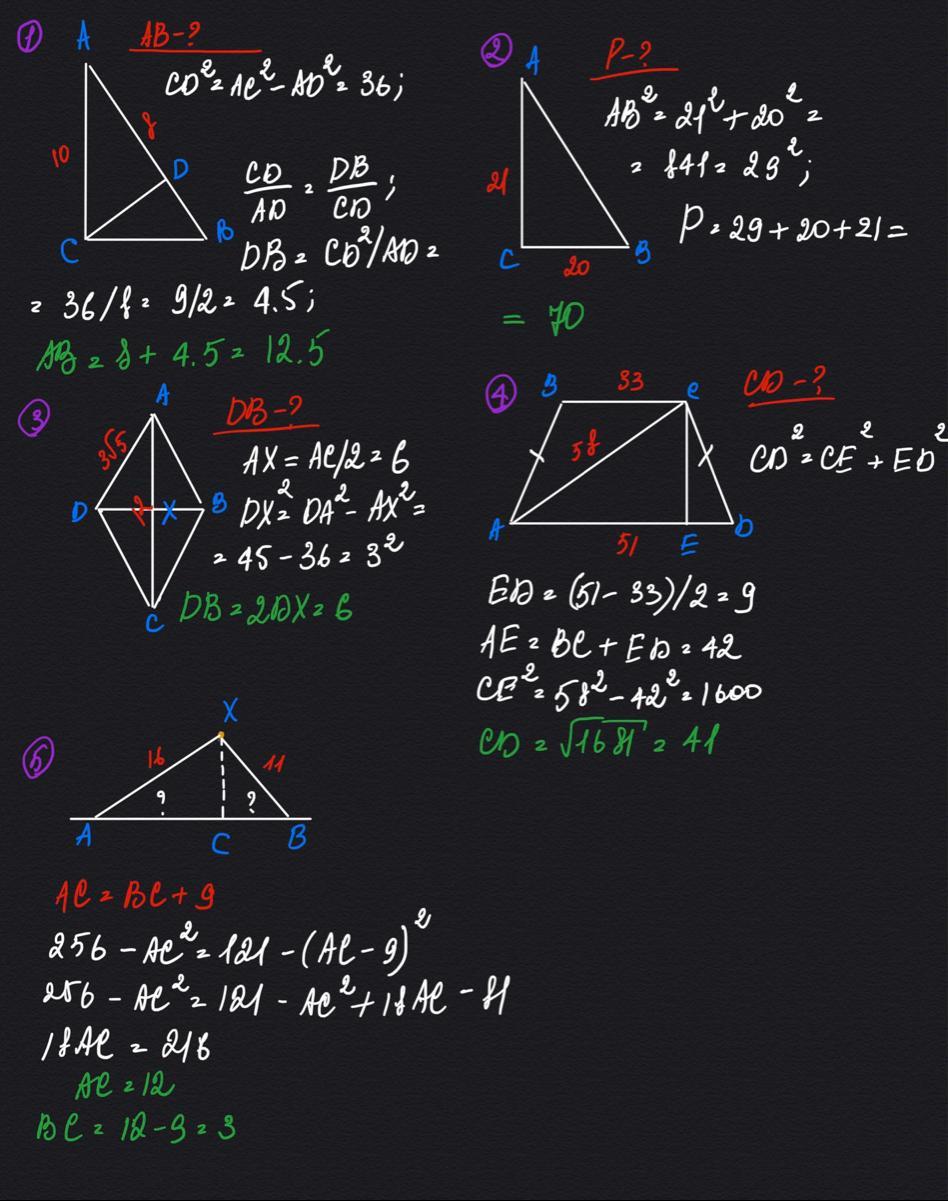 1
AB-?
A
CD² = AC² - AD² = 36;
8
10
D
CD/AD = DB/CD;
C
B
DB = CD²/AD =
= 36/8 = 9/2 = 4.5;
AB = 8 + 4.5 = 12.5
2
P-?
A
AB² = 21² + 20² =
= 841 = 29²;
21
P = 29 + 20 + 21 =
C
B
20
= 70
3
A
DB-?
3√5
AX = AC/2 = 6
D
X
B
DX² = DA² - AX² =
= 45 - 36 = 3²
C
DB = 2DX = 6
4
B
33
C
CD-?
58
CD² = CE² + ED²
A
51
E
D
ED = (51 - 33)/2 = 9
AE = BC + ED = 42
CE² = 58² - 42² = 1600
CD = √1681 = 41
5
X
16
11
?
?
A
C
B
AC = BC + 9
256 - AC² = 121 - (AC - 9)²
256 - AC² = 121 - AC² + 18AC - 81
18AC = 216
AC = 12
BC = 12 - 9 = 3